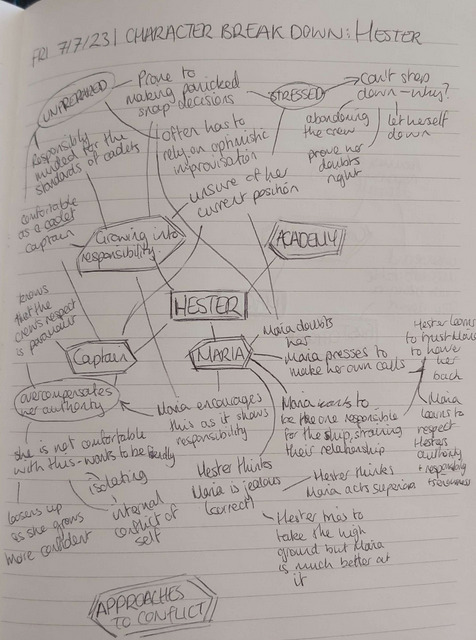 FRI 7/7/23 | CHARACTER BREAK DOWN: HESTER
UNPREPARED
Prone to
making panicked
snap decisions
STRESSED
can't stop
down - why?
abandoning
the crew
let herself
down
prove her
doubts
right
Responsibly
minded for the
standards of cadets
often has to
rely on optimistic
improvisation
comfortable
as a cadet
captain
unsure of her
current position
Growing into
responsibility
ACADEMY
HESTER
knows
that the
crew's respect
is paramount
Captain
MARIA
Maria doubts
her
Maria presses to
make her own calls
Hester learns
to trust Maria
to have
her
back
overcompensates
her authority
Maria encourages
this as it shows
responsibility
Maria wants to
be the one responsible
for the ship, straining
their relationship
Maria
learns to
respect
Hester's
authority
+ responsibly
she is not comfortable
with this - wants to be friendly
isolating
Hester thinks
Maria is jealous
(correct)
Hester thinks
Maria acts superior
loosens up
as she grows
more confident
internal
conflict of
self
Hester tries to
take the high
ground but Maria
is much better at
it
APPROACHES
TO CONFLICT